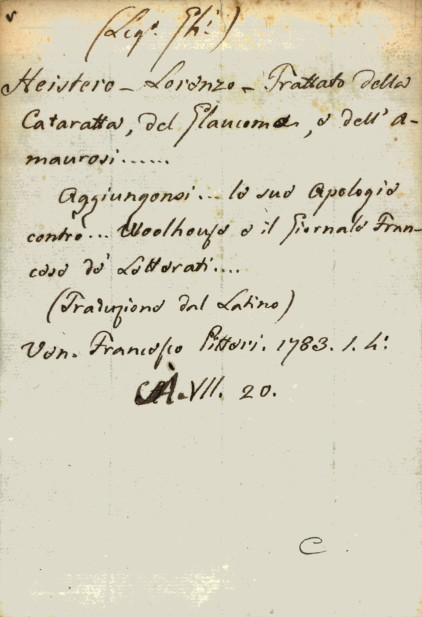 (Leg.º Gh.i)
Heistero - Lorenzo - Trattato della
Cataratta, del Glaucoma, e dell' A-
maurosi......
Aggiungonsi... le sue Apologie
contro... Woolhouse e il Giornale Fran-
cese de' Letterati....
(Traduzione dal Latino)
Ven. Francesco Pitteri. 1783. 1. 4.º
A. VII. 20.
C